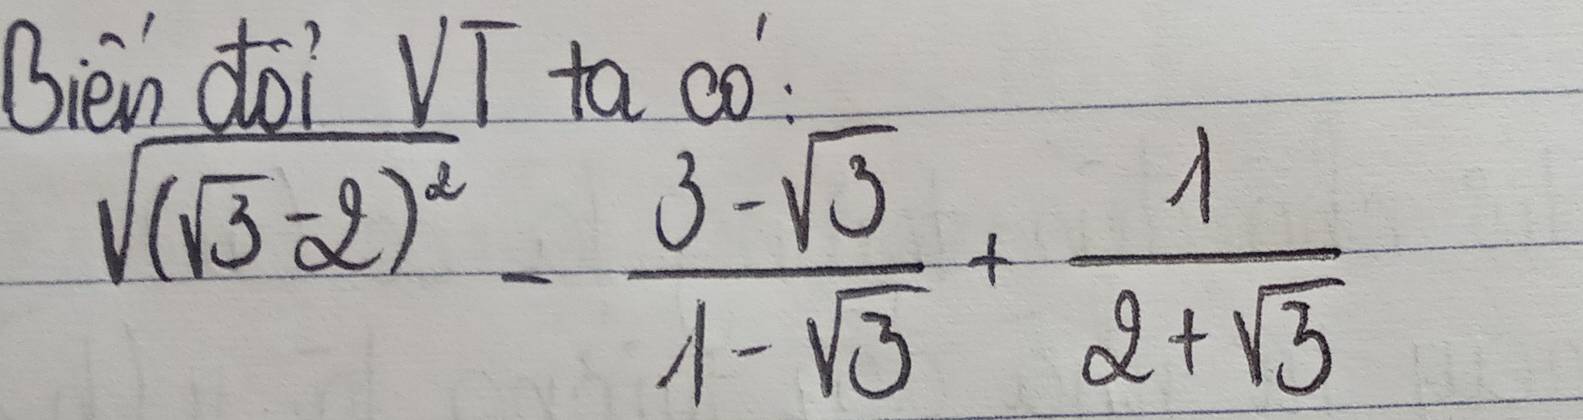 Biến đổi VT ta có:
√((√3-2)²) - (3-√3)/(1-√3) + 1/(2+√3)